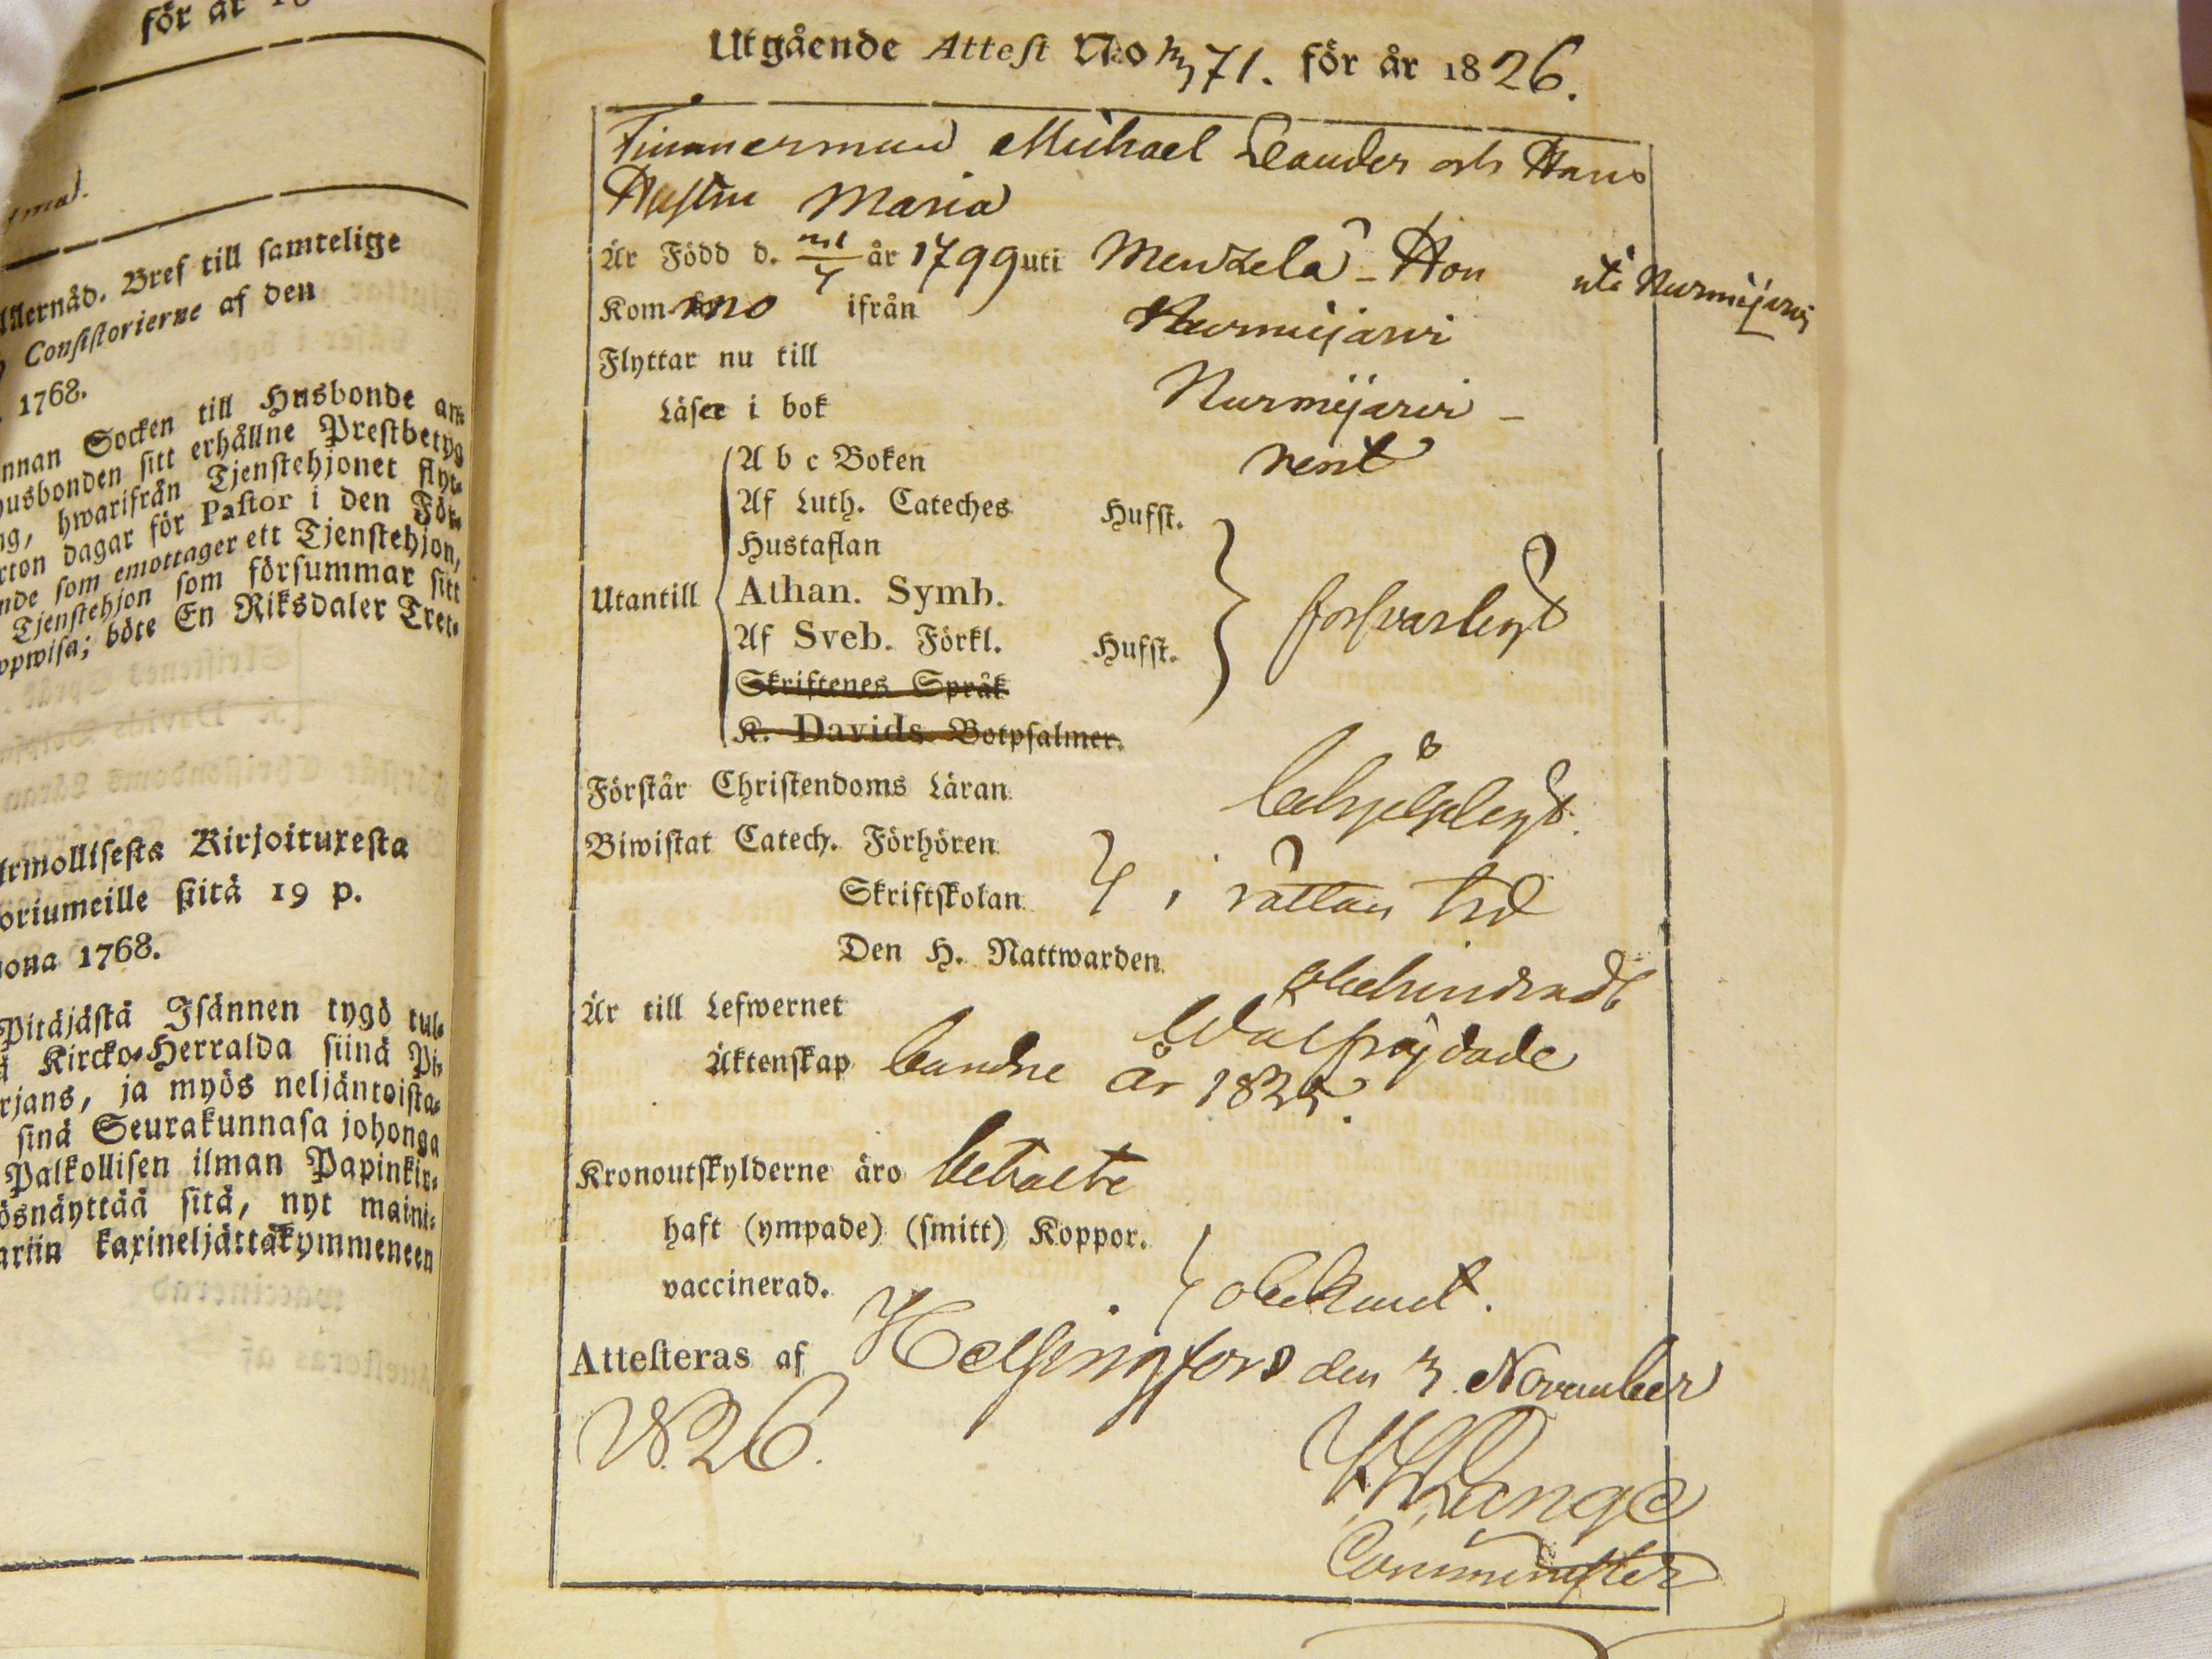 för år 18
Allernåd. Bref till samtelige
Consistorierne af den
1768.
nnan Socken till Husbonde an-
husbonden sitt erhållne Prestbetyg
ng, hwarifrån Tjenstehjonet flyt-
rton dagar för Pastor i den För-
nde som emottager ett Tjenstehjon,
Tjenstehjon som försummar sitt
vpwisa; böte En Riksdaler Tret-
Armollisesta Kirjoituxesta
oriumeille siitä 19 p.
kona 1768.
Pitäjästä Isännen tygö tul-
ä Kircko-Herralda siinä Pi-
rjans, ja myös neljäntoista-
sinä Seurakunnasa johonga
Palkollisen ilman Papinkir-
ösnäyttää sitä, nyt maini-
ariin kaxineljättäkymmeneen
Utgående Attest No 371. för år 1826.
Timmerman Michael Leander och Hans
Hustru Maria
Är Född d. år 1799 uti Mentzelä - Hon uti Nurmijärvi
Kom ifrån Nurmijärvi
Flyttar nu till Nurmijärvi -
Läser i bok rent
A b c Boken
Af Luth. Cateches Hufst.
Hustaflan
Utantill Athan. Symb. försvarligt
Af Sveb. Förkl. Hufst.
Skriftenes Språk
K. Davids Botpsalmer.
Förstår Christendoms Läran behjelpligt.
Biwistat Catech. Förhören
Skriftskolan i rättan tid
Den H. Nattwarden obehindrade
Är till Lefwernet Wälfrägdade
Äktenskap bundne år 1825.
Kronoutskylderne äro betalte
haft (ympade) (smitt) Koppor.
vaccinerad. obekant.
Attesteras af Helsingfors den 3. November
1826.
Lange
Comminister